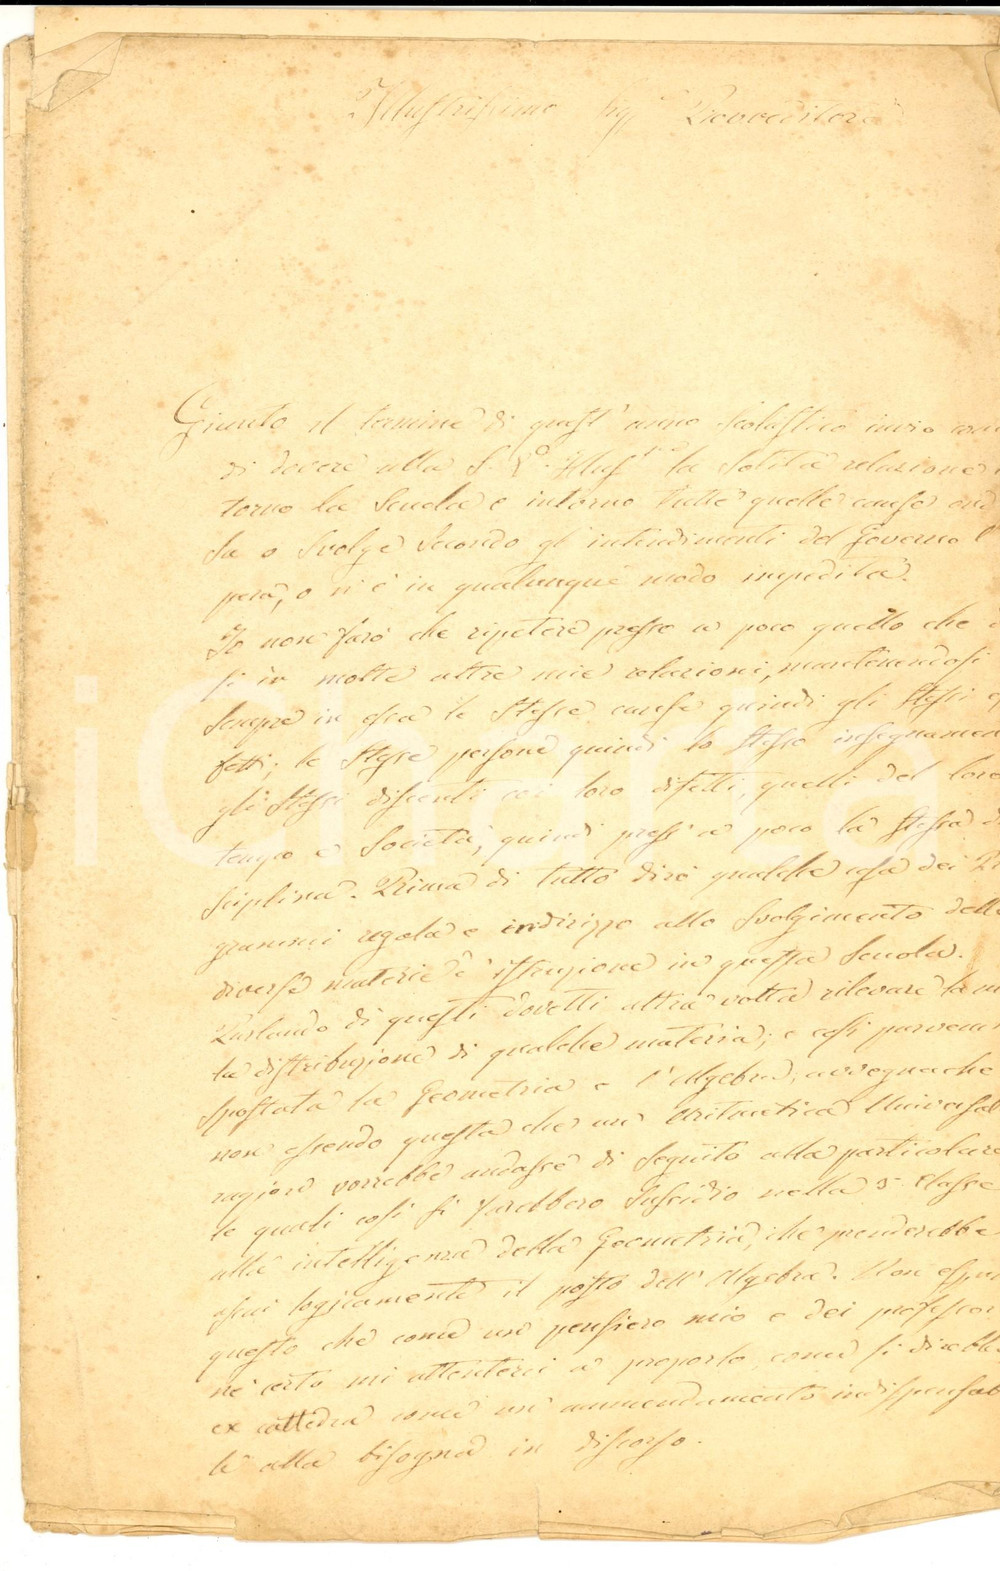 Illustrissimo Sigr Provveditore
Giunto il termine di quest' anno scolastico invio com
di dovere alla S. Va. Illusma la solita relazione in
torno la Scuola e intorno tutte quelle cause ond
sa o svolge secondo gl' intendimenti del Governo l'
pera, o vi è in qualunque modo impedita.
Io non farò che ripetere presso a poco quello che
si in molte altre mie relazioni, mantenendosi
sempre in essa le stesse cause quindi gli stessi ef
fetti; le stesse persone quindi lo stesso insegnamen
gli stessi discenti coi loro difetti, quelli del loro
tempo e società, quindi press' a poco la stessa di
sciplina. Prima di tutto dirò qualche cosa dei Pr
grammi regola e indirizzo allo svolgimento delle
diverse materie d' istruzione in questa Scuola.
Parlando di questi dovetti altra volta rilevare la ma
la distribuzione di qualche materia; e così parvemi
spostata la Geometria e l' Algebra, avvegnachè
non essendo questa che un' Aritmetica Universale
ragion vorrebbe andasse di seguito alla particolare
le quali così si farebbero sussidio nella 3a Classe
alla intelligenza della Geometria, che prenderebbe
assai logicamente il posto dell' Algebra. Non espon
questo che come un pensiero mio e dei professori
nè certo mi attenterei a proporlo, come si direbbe
ex cattedra come un' ammendamento indispensabi
le alla bisogna in discorso.
iCharta